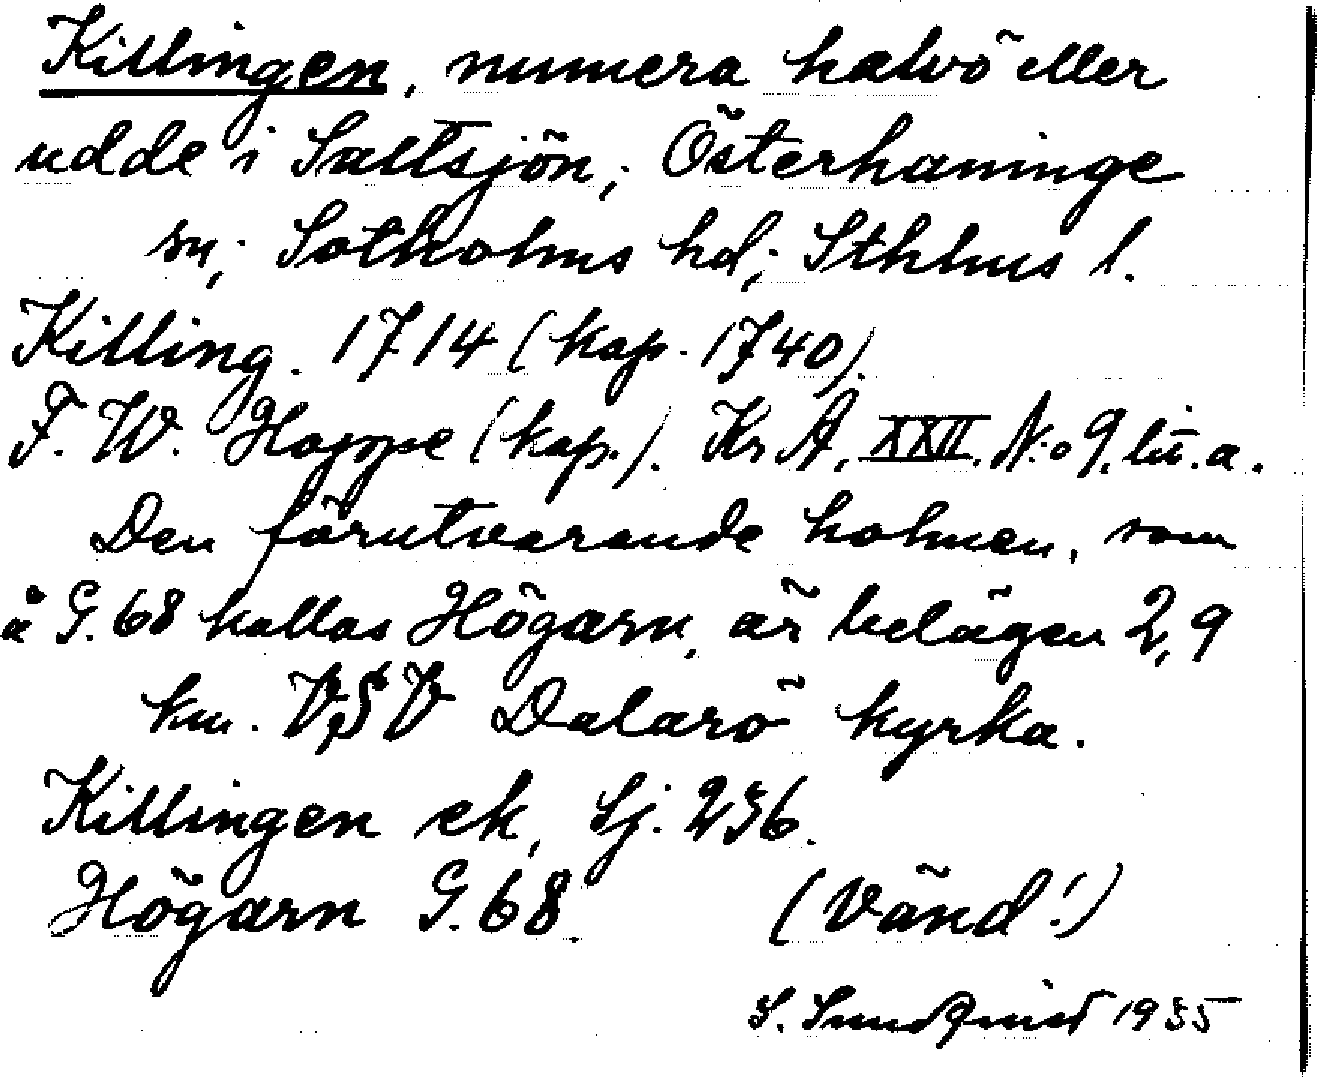 Killingen, numera halvö eller
udde i Saltsjön; Österhaninge
sn; Sotholms hd; Sthlms l.
Killing. 1714 (kap. 1740).
F. W. Hoppe (kap.). Kr A, XXII. N:o 9. lit. a.
Den förutvarande holmen, som
å G. 68 kallas Högarn, är belägen 2,9
km. VSV Dalarö kyrka.
Killingen ek, Sj. 236.
Högarn G. 68. (Vänd!)
S. Sundqvist 1935